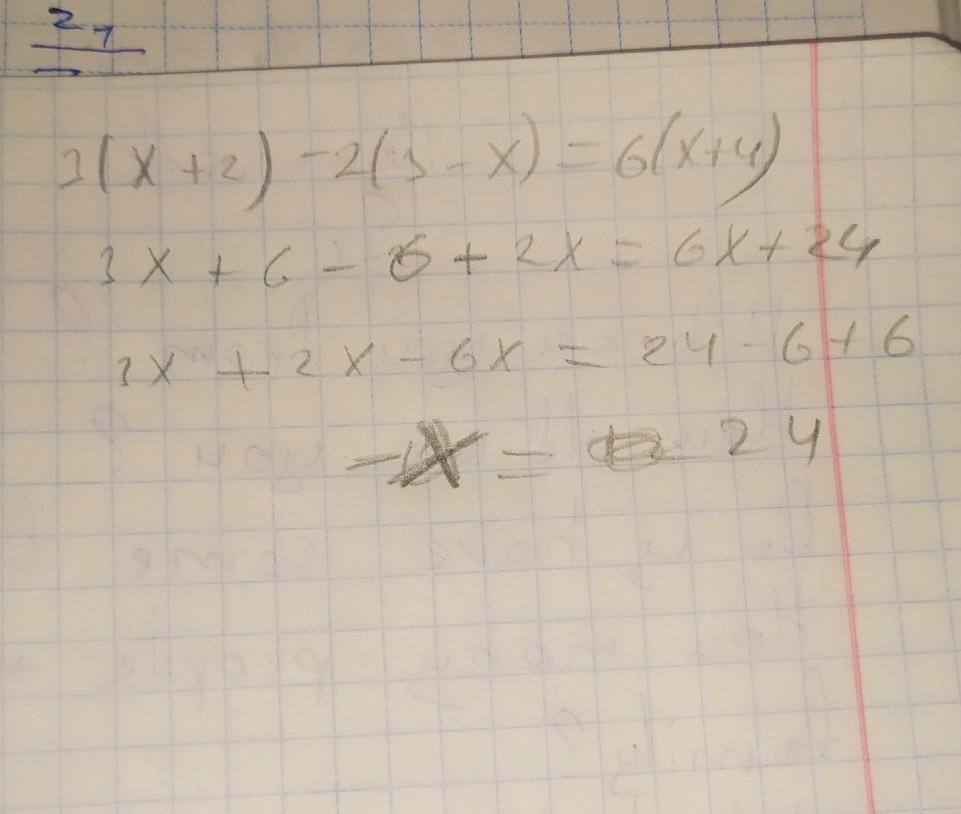 27
3(x+2)-2(3-x)=6(x+4)
3x+6-6+2x=6x+24
3x+2x-6x=24-6+6
-x=24